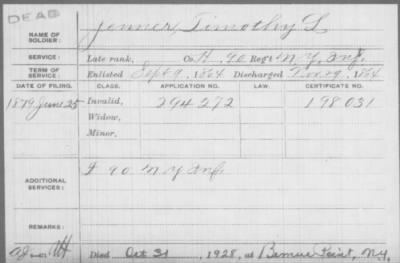 DEAD
NAME OF SOLDIER: Jenner, Timothy L
SERVICE: Late rank, Co. H, 90 Reg't N.Y. Inf.
TERM OF SERVICE: Enlisted Sept 9, 1864 Discharged Nov 29, 1864
DATE OF FILING. CLASS. APPLICATION NO. LAW. CERTIFICATE NO.
1879 June 25 Invalid, 294272 198031
Widow,
Minor,
ADDITIONAL SERVICES: F 90 N Y Inf
REMARKS:
Died Oct 31, 1928, at Bemus Point, N.Y.